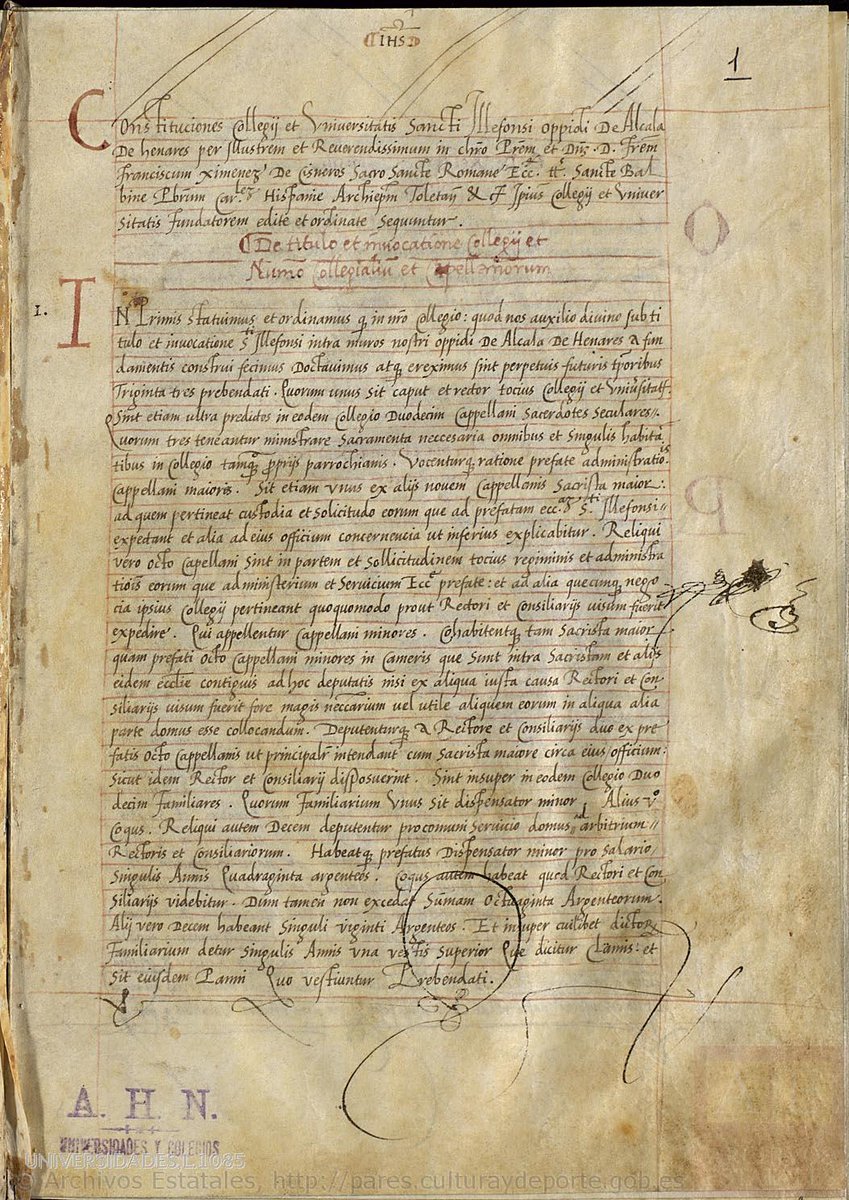 IHS
1
Constituciones Collegij et Vniversitatis Sancti Illefonsi oppidi De Alcala
De henares per Illustrem et Reverendissimum in chro Prem et Dn̄. D. Frem
Franciscum Ximenez De Cisneros Sacro Sancte Romane Ecc. tt. Sancte Bal
bine Pbrum Car. Hispanie Archiepm Toletan & cͣ Ipius Collegij et Vniver
sitatis fundatorem edite et ordinate Sequuntur.
De titulo et invocatione Collegij et
Numo Collegialium et Capellanorum
1.
IN Primis Statuimus et ordinamus q in nro Collegio: quod nos auxilio divino sub ti
tulo et invocatione S. Illefonsi intra muros nostri oppidi De Alcala De Henares a fun
damentis construi fecimus Doctavimus atq ereximus sint perpetuis futuris tporibus
Triginta tres prebendati. Quorum unus sit caput et rector tocius Collegij et Vniusitatis
Sint etiam ultra predictos in eodem Collegio Duodecim Cappellani Sacerdotes Seculares.
Quorum tres teneantur ministrare Sacramenta neccesaria omnibus et singulis habitā
tibus in Collegio tamq proprijs parrochianis. Vocenturq ratione prefate administratiois
Cappellani maiores. Sit etiam vnus ex alijs novem Cappellanis Sacrista maior:
ad quem pertineat custodia et Solicitudo eorum que ad prefatam ecc. S. Illefonsi
expectant et alia ad eius officium concernencia ut inferius explicabitur. Reliqui
vero octo Capellani sint in partem et sollicitudinem tocius regiminis et administra
tiōis eorum que ad ministerium et Servicium Ecc prefate: et ad alia quecunq nego
cia ipsius Collegij pertineant quoquomodo prout Rectori et Consiliarijs visum fuerit
expedire. Qui appellentur Cappellani minores. Cohabitentq tam Sacrista maior
quam prefati octo Cappellani minores in Cameris que sunt intra Sacristam et alijs
eidem ecclie contiguis ad hoc deputatis nisi ex aliqua iusta causa Rectori et Con
siliarijs visum fuerit fore magis neccarium vel utile aliquem eorum in aliqua alia
parte domus esse collocandum. Deputenturq a Rectore et Consiliarijs duo ex pre
fatis octo Cappellanis ut principalr intendant cum Sacrista maiore circa eius officium:
sicut idem Rector et Consiliarij disposuerint. Sint insuper in eodem Collegio Duo
decim Familiares. Quorum Familiarium Vnus sit dispensator minor. Alius vo
Coqus. Reliqui autem Decem deputentur pro comuni Servicio domus ad arbitrium
Rectoris et Consiliariorum. Habeatq prefatus Dispensator minor pro Salario
Singulis Annis Quadraginta argenteos. Coqus autem habeat quod Rectori et Con
siliarijs videbitur. Dum tamen non excedat Sūmam Octuaginta Argenteorum.
Alij vero Decem habeant Singuli viginti Argenteos. Et insuper cuilibet dictoꝝ
Familiarium detur Singulis Annis vna vestis Superior Que dicitur Clamis: et
Sit eiusdem Panni Quo vestiuntur Prebendati.
A. H. N.
UNIVERSIDADES Y COLEGIOS
UNIVERSIDADES,L.1085
© Archivos Estatales, http://pares.culturaydeporte.gob.es